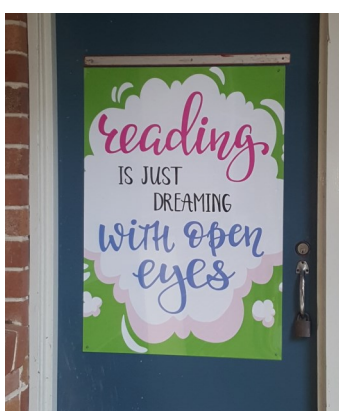 reading
IS JUST
DREAMING
WITH OPEN
eyes